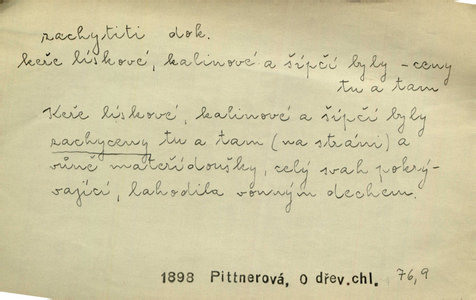 zachytiti dok.
keře lískové, kalinové a šípčí byly -ceny
tu a tam
Keře lískové, kalinové a šípčí byly
zachyceny tu a tam (na stráni) a
vůně mateřídoušky, celý svah pokrý-
vající, lahodila vonným dechem.
1898 Pittnerová, O dřev.chl. 76,9